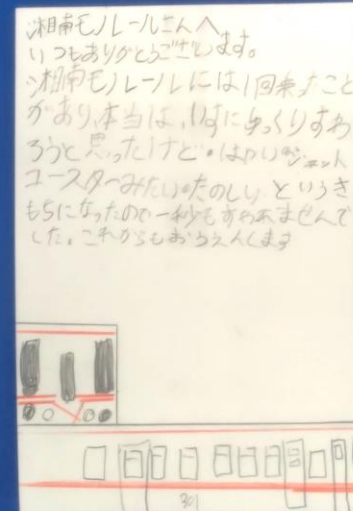 湘南モノレールさんへ
いつもありがとうございます。
湘南モノレールには1回乗ったこと
があり、本当は、いすにゆっくりすわ
ろうと思ったけど・はやい・ジェット
コースターみたい・たのしい というき
もちになったので一秒もすわれませんで
した。これからもおうえんします